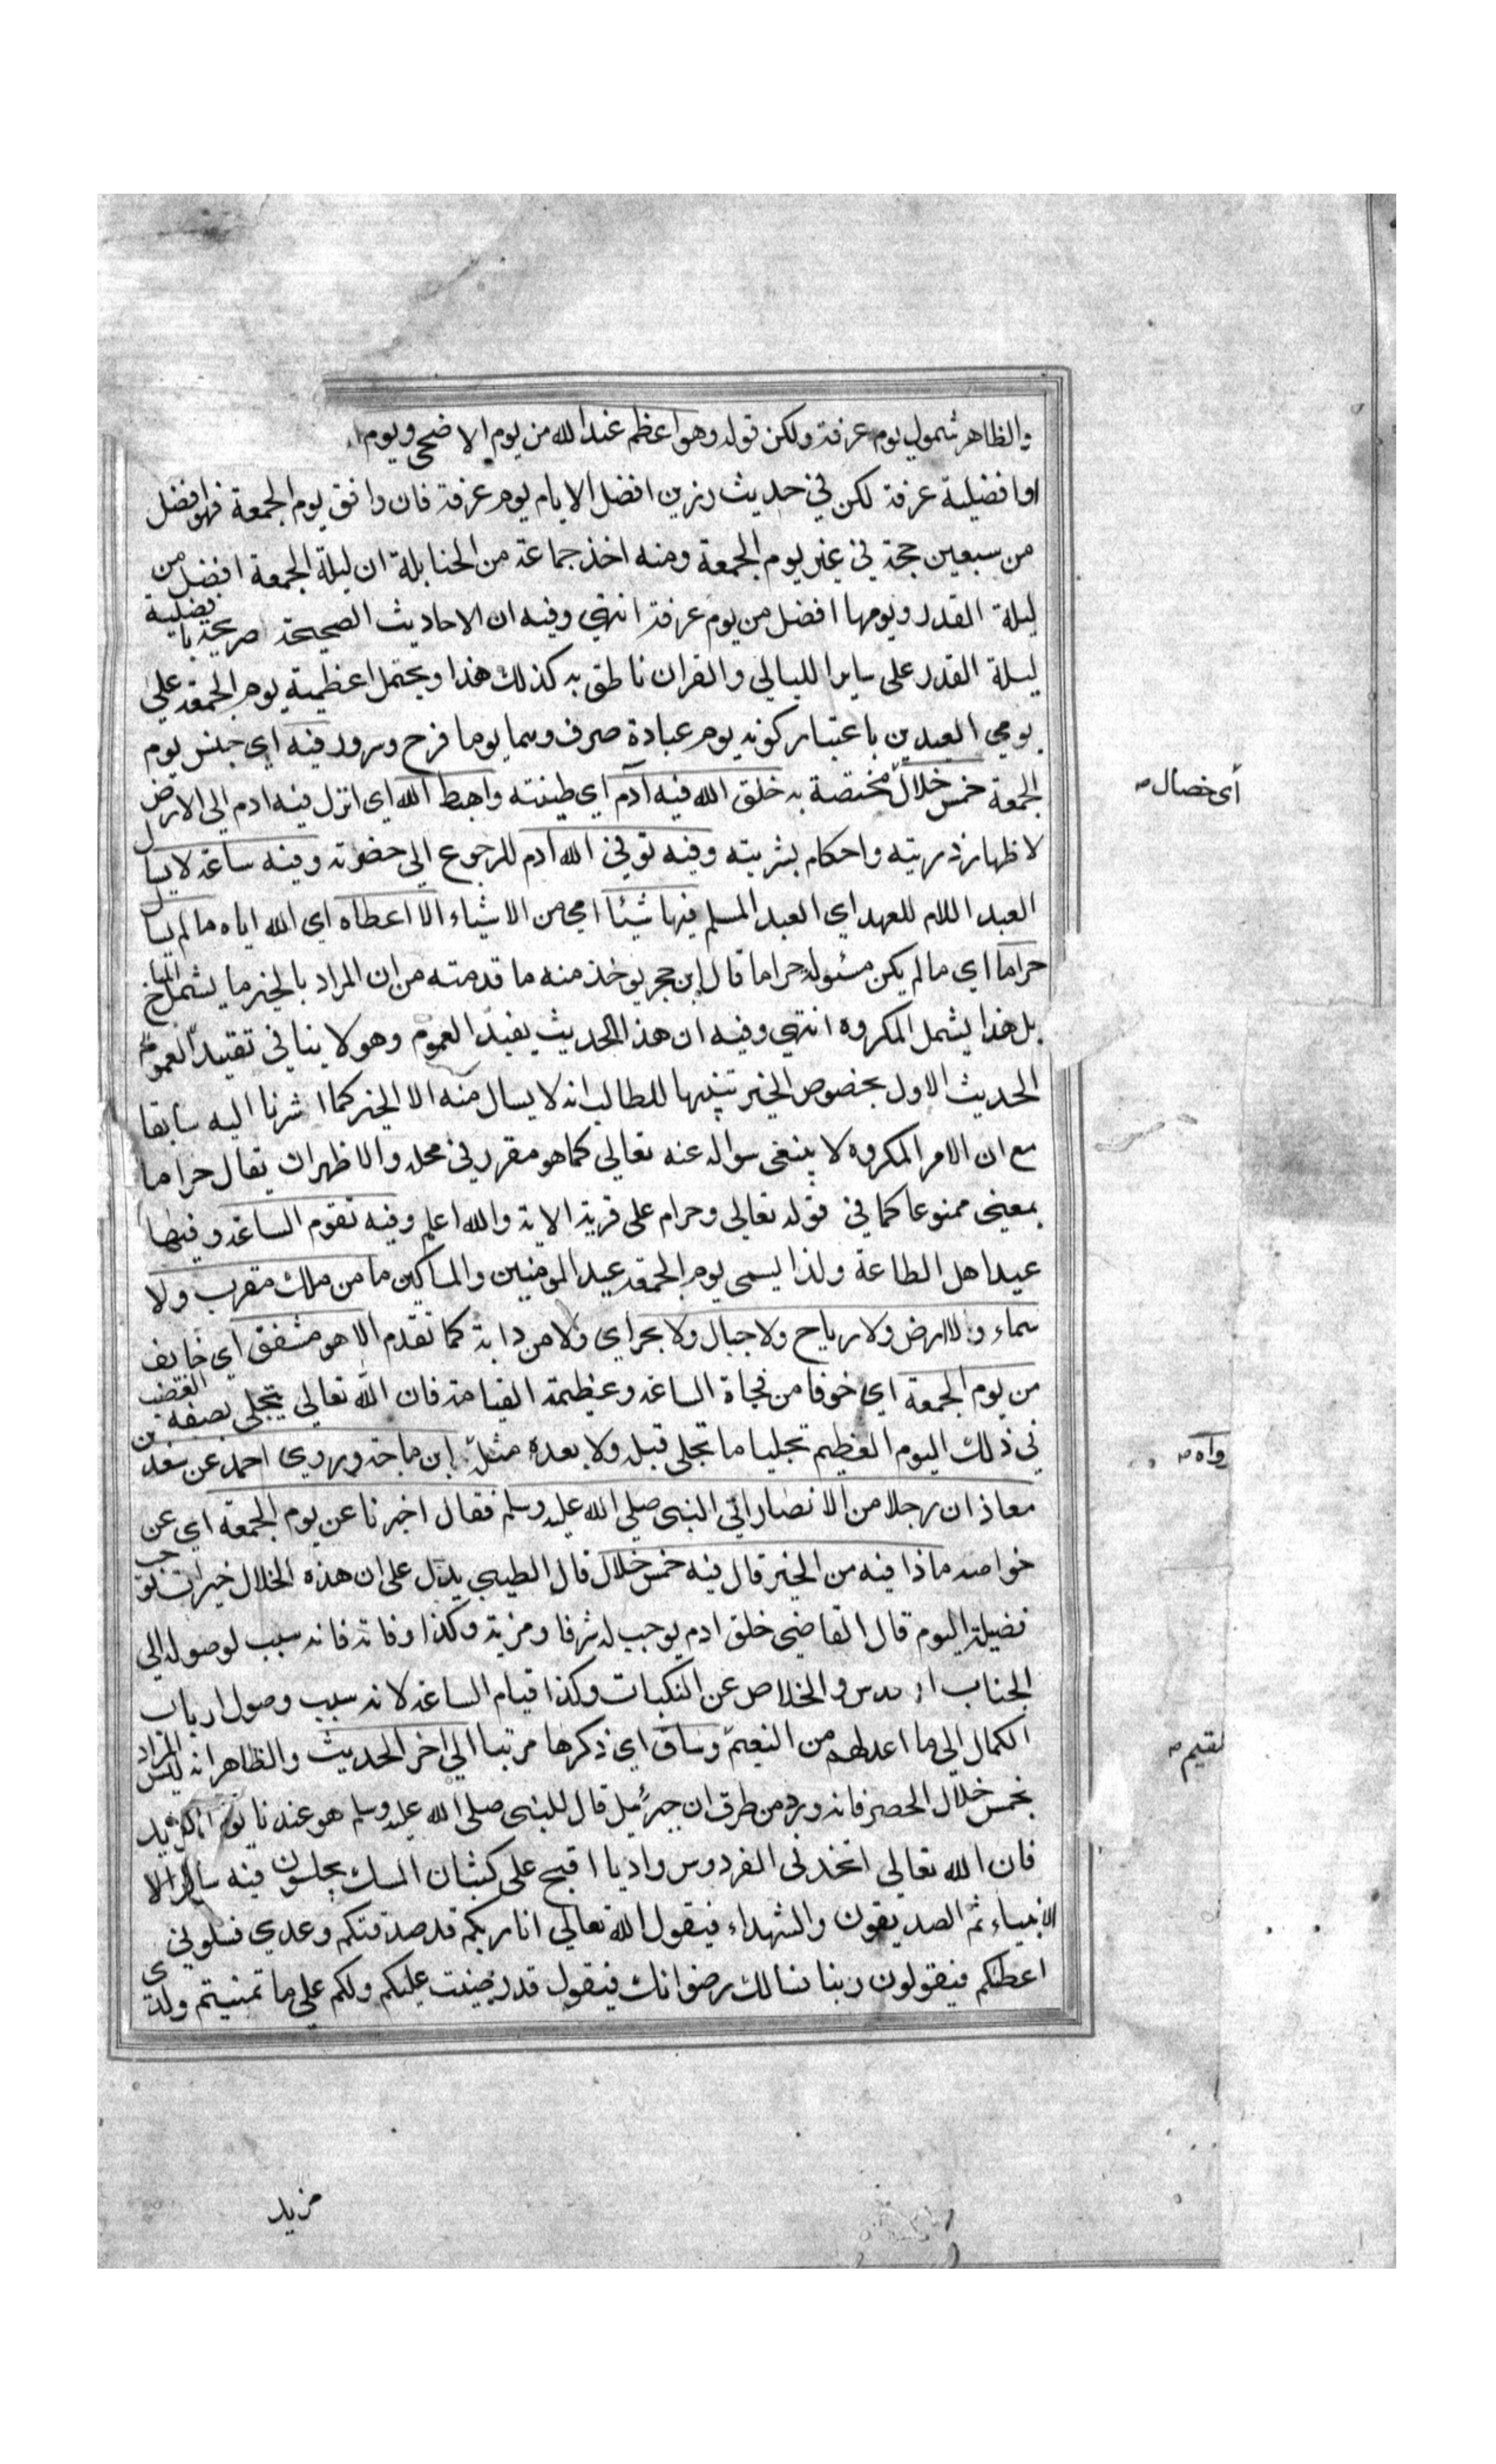 والظاهر شمول يوم عرفة ولكن قوله وهو اعظم عند الله من يوم الاضحى ويوم
او افضلية عرفة لكن في حديث رزين افضل الايام يوم عرفة فان وافق يوم الجمعة فهو افضل
من سبعين حجة في غير يوم الجمعة ومنه اخذ جماعة من الحنابلة ان ليلة الجمعة افضل من
ليلة القدر ويومها افضل من يوم عرفة انتهي وفيه ان الاحاديث الصحيحة صريحة بافضلية
ليلة القدر على ساير الليالي والقران ناطق به كذلك هذا ويحتمل اعظمية يوم الجمعة علي
يومي العيدين باعتبار كونه يوم عبادة صرف وهما يوما فرح وسرور فيه اي جنس يوم
الجمعة خمس خلال مختصة به خلق الله فيه آدم اي طينته واهبط الله اي انزل فيه ادم الي الارض
أي خصال
لاظهار ذريته واحكام بشريته وفيه توفي الله ادم للرجوع الي حضرته وفيه ساعة لا يسال
العبد اللام للعهد اي العبد المسلم فيها شيئا اي من الاشياء الا اعطاه اي الله اياه ما لم يسال
حراما اي ما لم يكن مسئوله حراما قال ابن حجر يوخذ منه ما قدمته من ان المراد بالخير ما يشمل المباح
بل هذا يشمل المكروه انتهي وفيه ان هذا الحديث يفيد العموم وهو لا ينافي تقييد العموم
الحديث الاول بخصوص الخير تنبيها للطالب انه لا يسال منه الا الخير كما اشرنا اليه سابقا
مع ان الامر المكروه لا ينبغي سواله عنه تعالي كما هو مقرر في محله والاظهر ان يقال حراما
بمعني ممنوعا كما في قوله تعالى وحرام على قرية الاية والله اعلم وفيه تقوم الساعة وفيها
عيد اهل الطاعة ولذا يسمي يوم الجمعة عيد المومنين والمساكين ما من ملك مقرب ولا
سماء ولا ارض ولا رياح ولا جبال ولا بحر اي ولا من دابة كما تقدم الا هو مشفق اي خايف
من يوم الجمعة اي خوفا من فجاة الساعة وعظيمة القيامة فان الله تعالي يتجلي بصفة الغضب
في ذلك اليوم العظيم تجليا ما تجلى قبله ولا بعده مثله ابن ماجة وروي احمد عن سعد بن
رواه
معاذ ان رجلا من الانصار اتي النبي صلي الله عليه وسلم فقال اخبرنا عن يوم الجمعة اي عن
خواصه ماذا فيه من الخير قال فيه خمس خلال قال الطيبي يدل على ان هذه الخلال خيرات توجب
فضيلة اليوم قال القاضي خلق ادم يوجب له شرفا ومزية وكذا وفاته فانه سبب لوصوله الي
الجناب والخلاص عن النكبات وكذا قيام الساعة لانه سبب وصول ارباب
الكمال الي ما اعد لهم من النعيم وساق اي ذكرها مرتبا الي اخر الحديث والظاهر انه ليس المراد
بخمس خلال الحصر فانه ورد من طرق ان جبرئيل قال للنبي صلى الله عليه وسلم هو عندنا يوم المزيد
فان الله تعالي اتخذ في الفردوس واديا افيح على كثبان المسك يجلسون فيه
الانبياء ثم الصديقون والشهداء فيقول الله تعالي انا ربكم قد صدقتكم وعدي فسلوني
اعطكم فيقولون ربنا نسالك رضوانك فيقول قد رضيت عليكم ولكم علي ما تمنيتم ولدي
مزيد